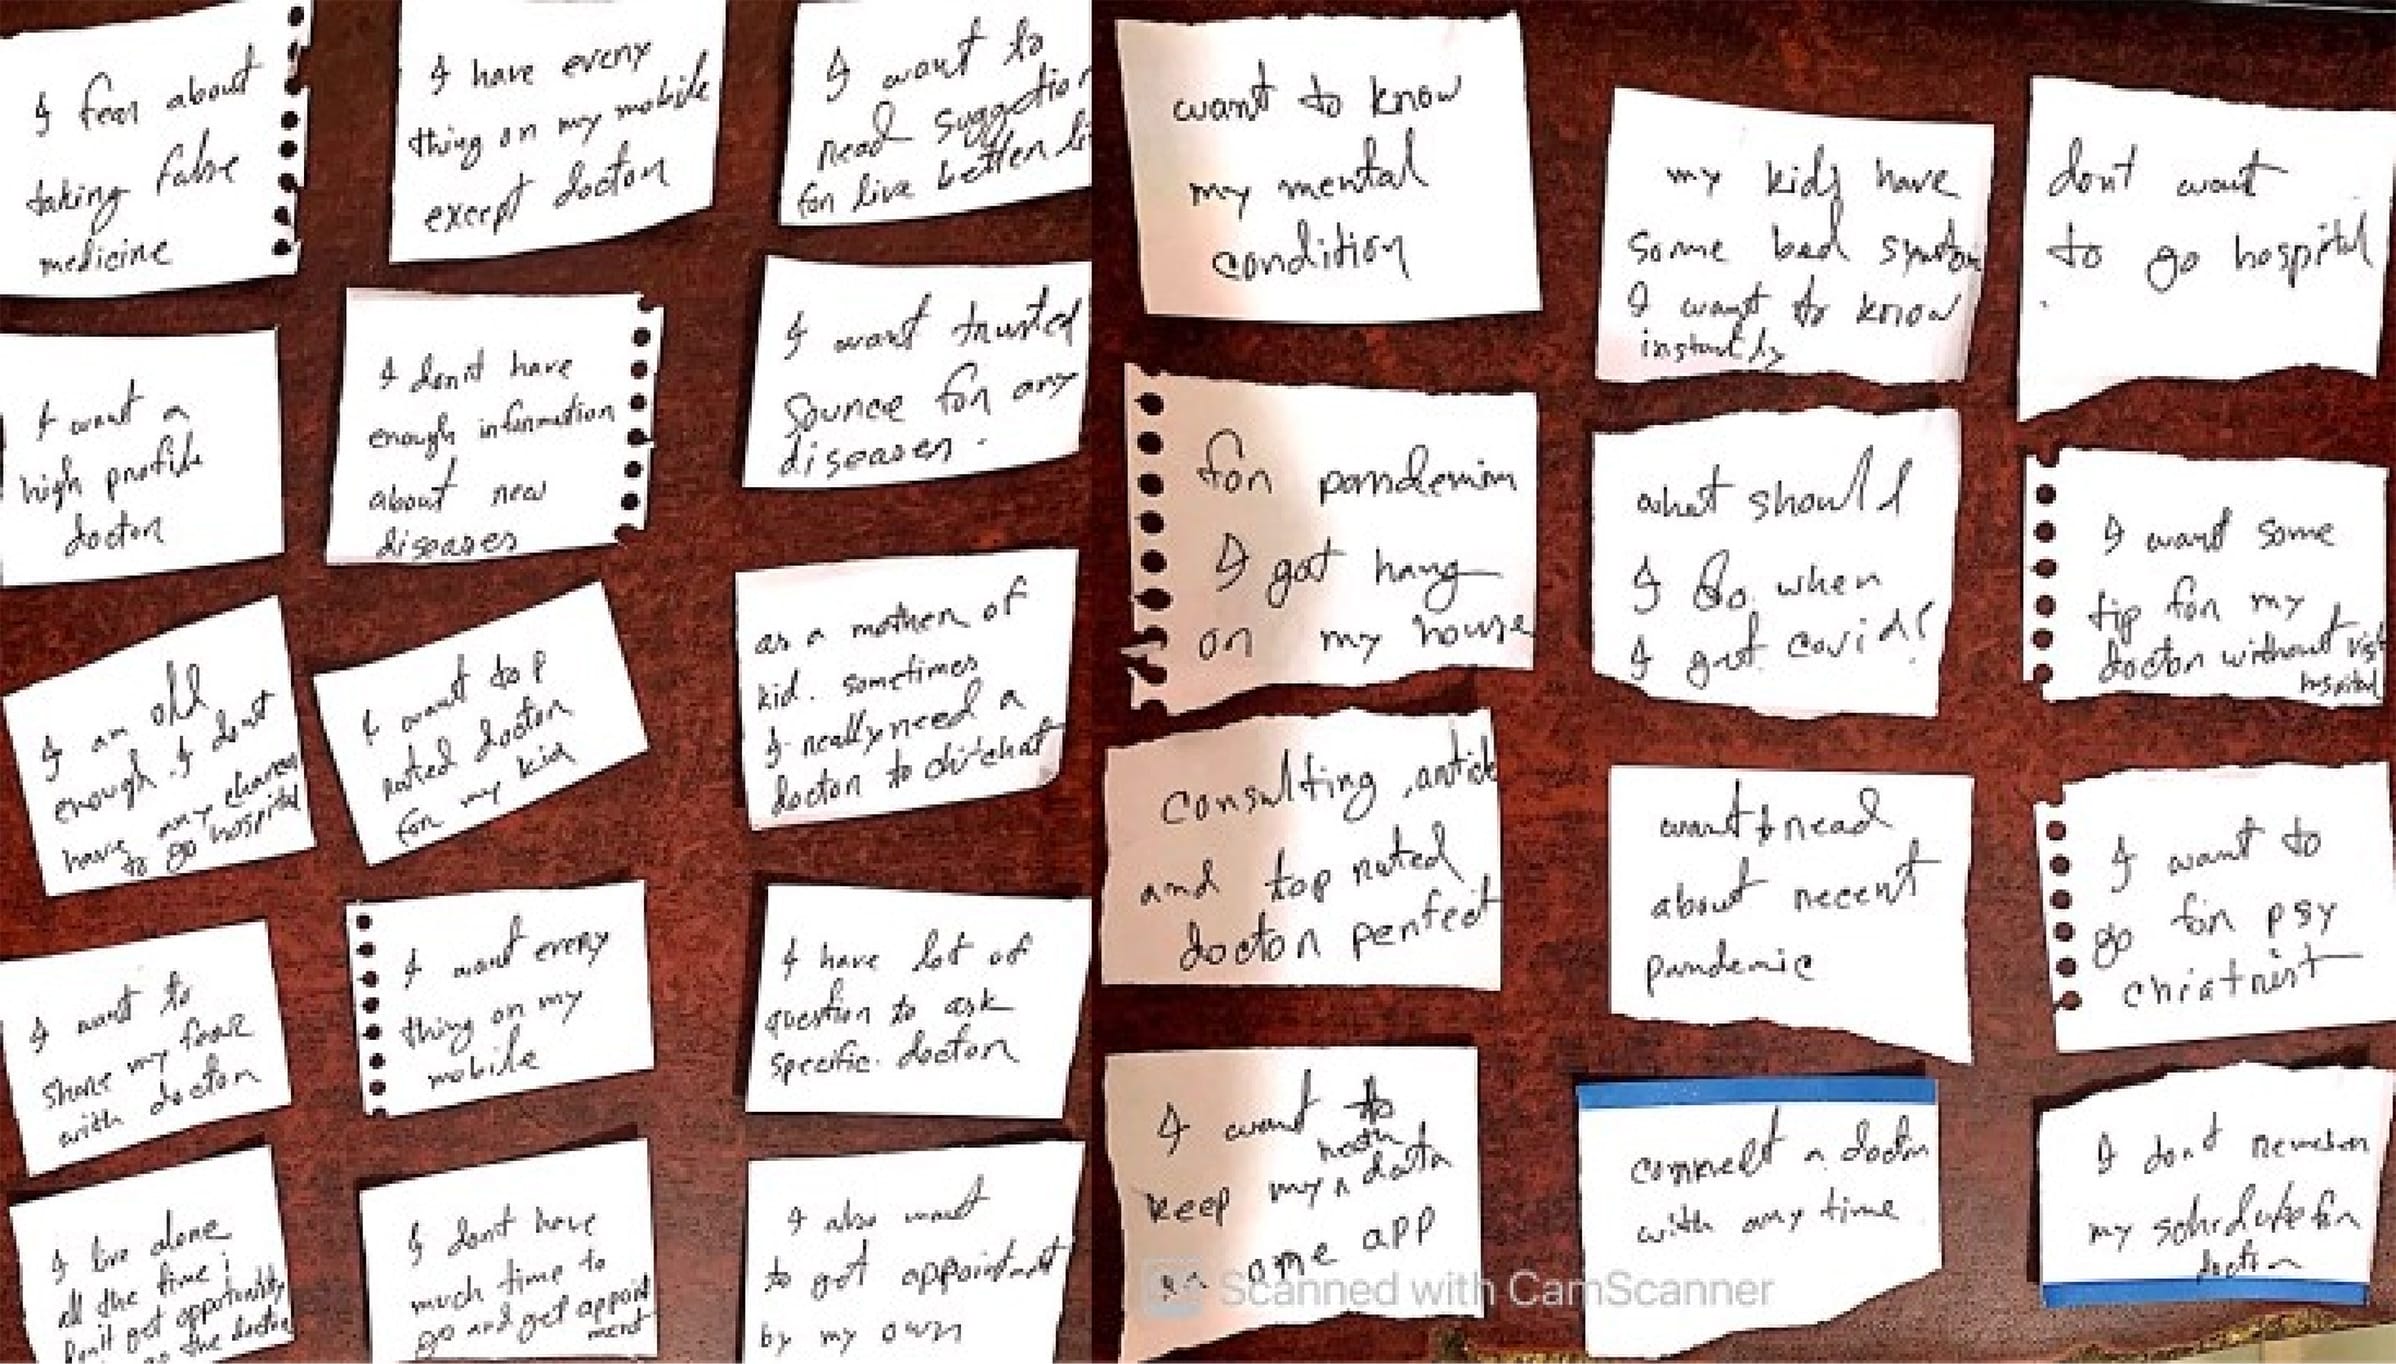 I fear about
taking false
medicine
I have every
thing on my mobile
except doctor
I want to
read suggetion
for live better
want to know
my mental
condition
my kids have
some bad
I want to know
instantly
dont want
to go hospital
I want a
high profile
doctor
I don't have
enough information
about new
diseases
I want trusted
Source for any
diseases.
for
I got hang
on my house
what should
I do when
I get covid?
I want some
tip for my
doctor without visit
hospital
I am old
enough. I dont
have any chance
to go hospital
I want top
rated doctor
for my kid
as a mother of
kid. sometimes
I really need a
doctor to
consulting
and top rated
doctor perfect
want to read
about recent
pandemic
I want to
go for psy
chiatrist
I want to
share my fear
with doctor
I want every
thing on my
mobile
I have lot of
question to ask
specific. doctor
I want to
keep my data
app
connect a doctor
with any time
I dont
my for
I live alone
all the time i
Don't get opportunity
the doctor
I dont have
much time to
go and get appoint
ment
I also want
to get appointment
by my own
Scanned with CamScanner